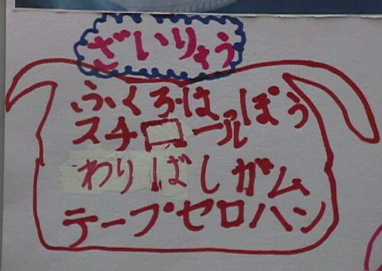 ざいりょう
ふくろ・はっぽう
スチロール
わりばしガム
テープセロハン